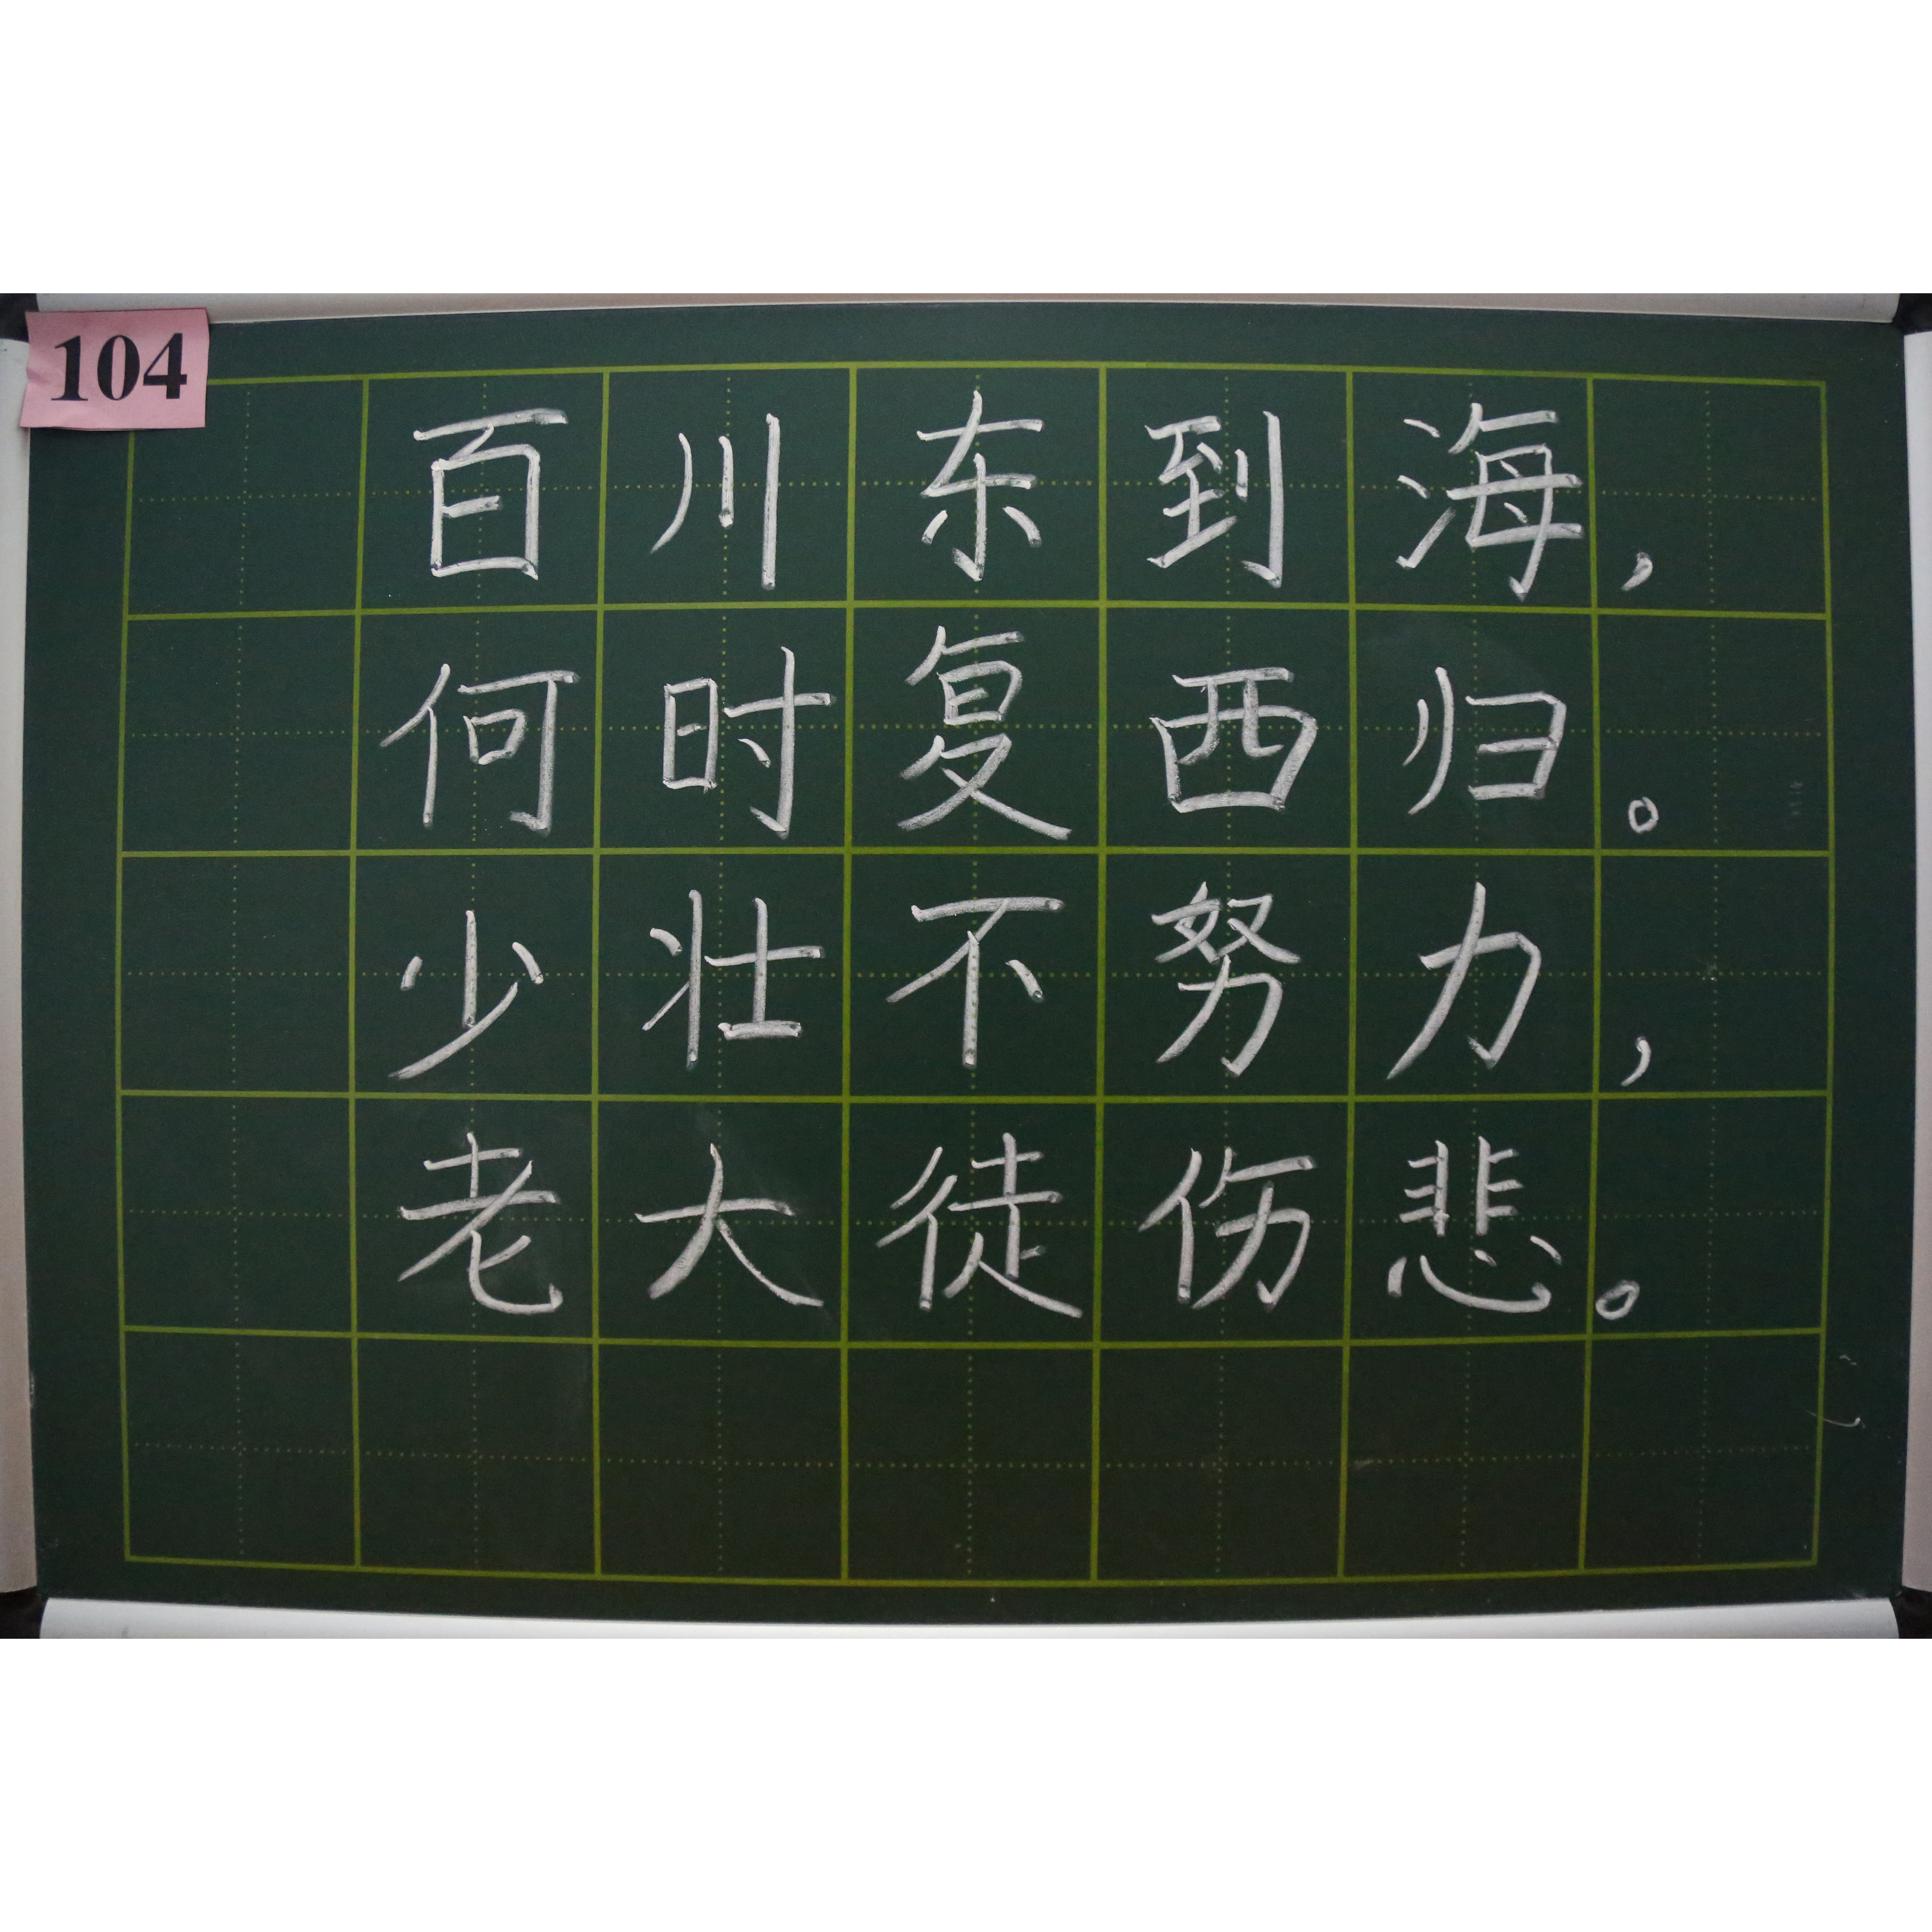 104
百川东到海,
何时复西归。
少壮不努力,
老大徒伤悲。